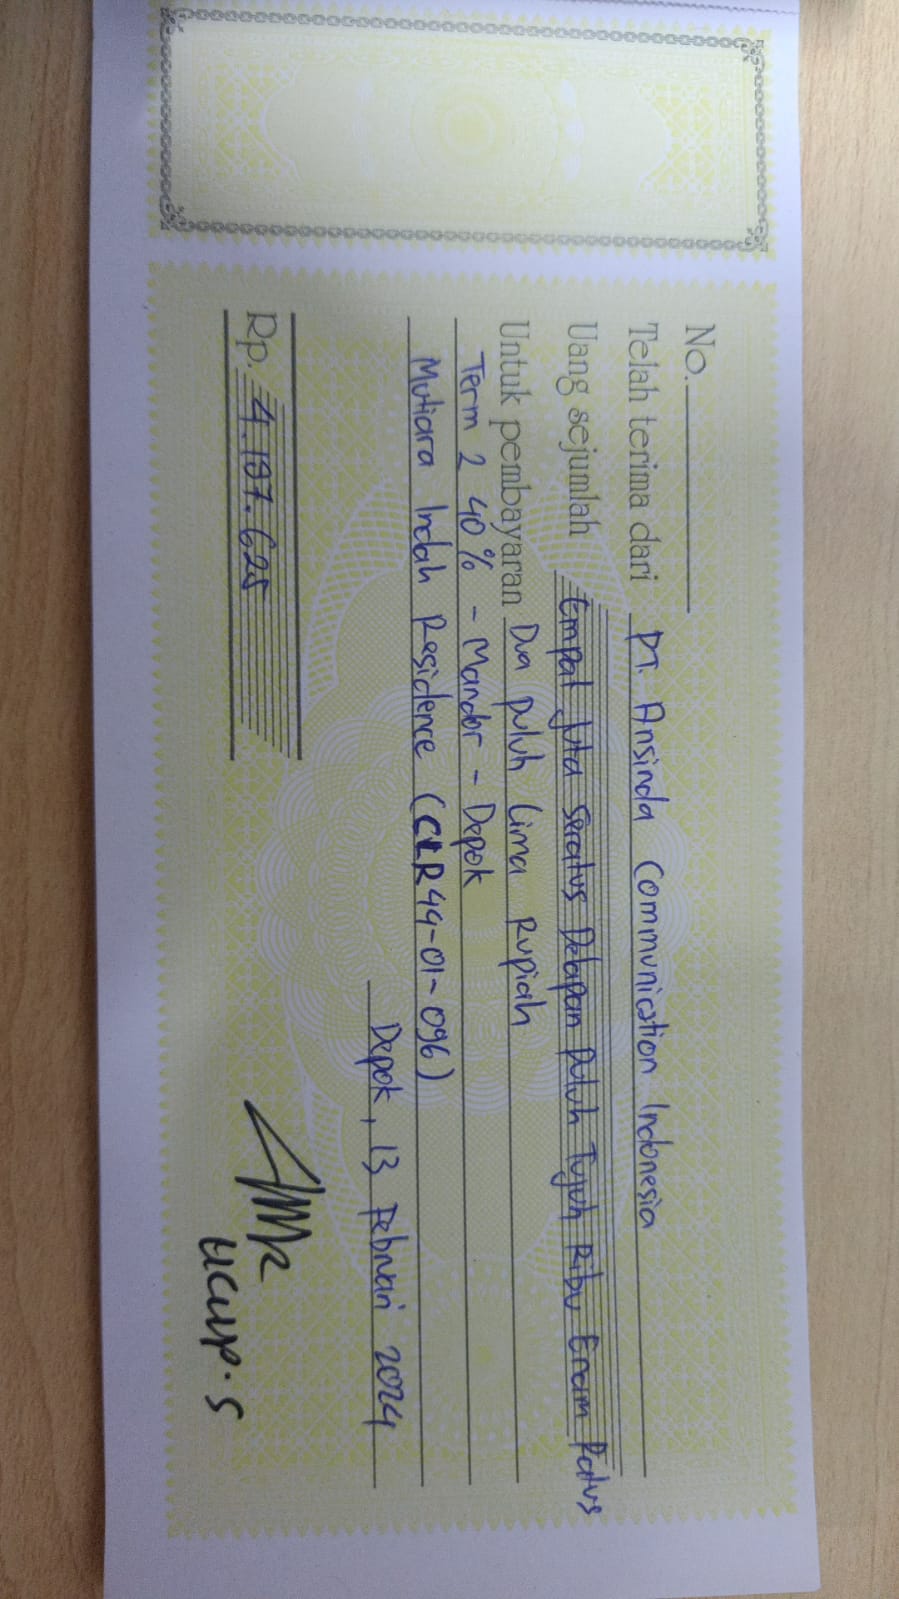 No.
Telah terima dari PT. Ansinda Communication Indonesia
Uang sejumlah Empat Juta Seratus Delapan Puluh Tujuh Ribu Enam Ratus
Untuk pembayaran Dua puluh Lima Rupiah
Term 2 40% - Mandor - Depok
Mutiara Indah Residence (CLR44-01-096)
Depok, 13 Februari 2024
Rp. 4.187.625
UCUP.S